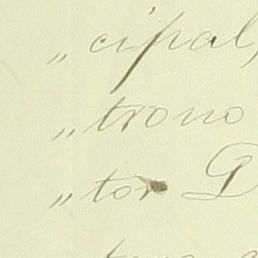 „cipal,
„trono
„tor D